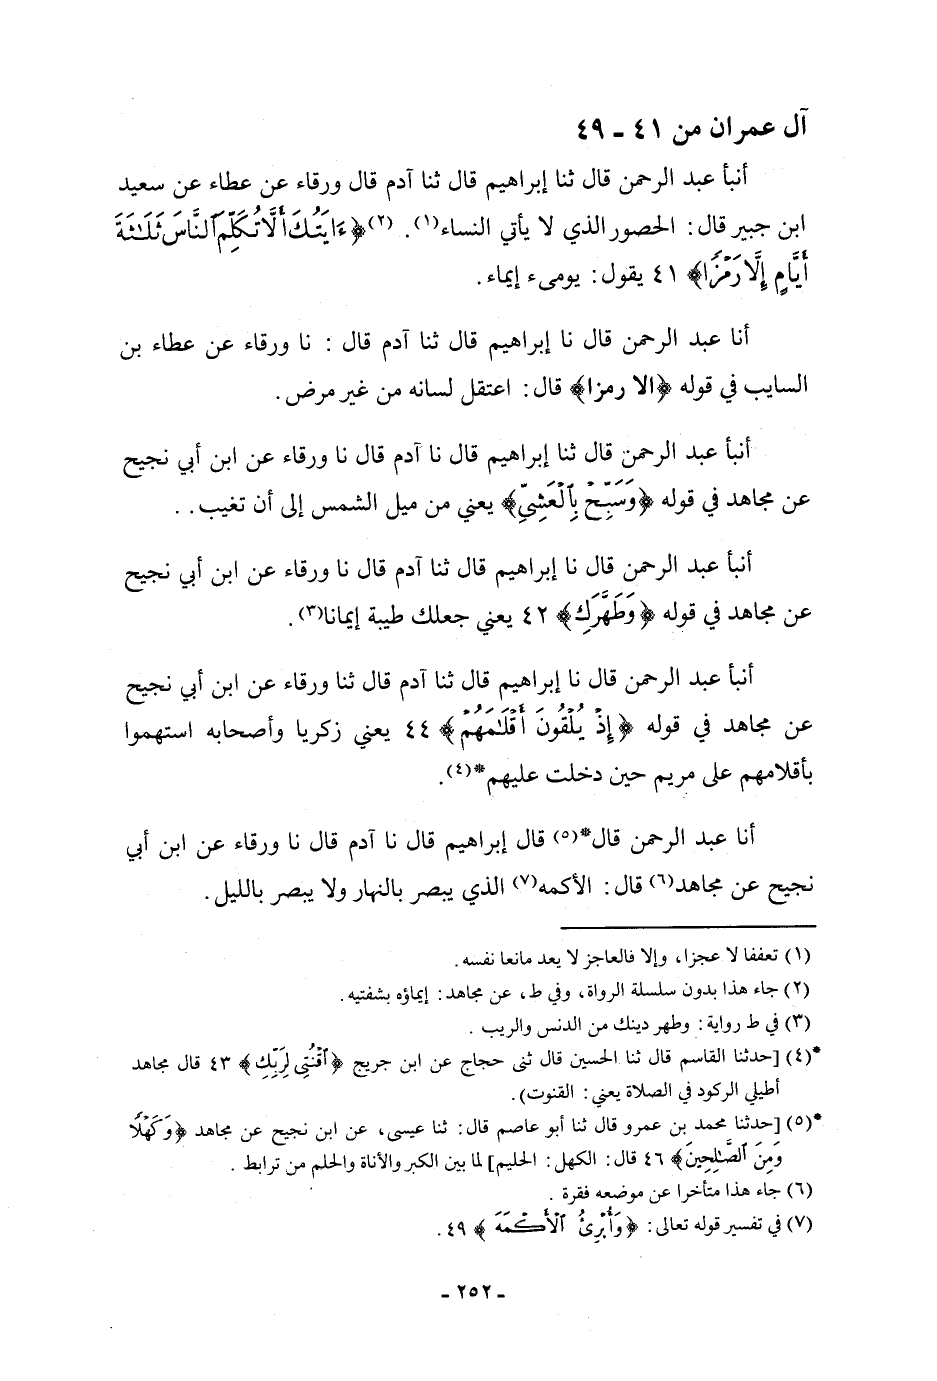 آل عمران من ٤١ ـ ٤٩
أنبأ عبد الرحمن قال ثنا إبراهيم قال ثنا آدم قال ورقاء عن عطاء عن سعيد
ابن جبير قال: الحصور الذي لا يأتي النساء(١). (٢)﴿ءَايَتُكَ أَلَّا تُكَلِّمَ ٱلنَّاسَ ثَلَـٰثَةَ
أَيَّامٍ إِلَّا رَمْزًا﴾ ٤١ يقول: يومىء إيماء.
أنا عبد الرحمن قال نا إبراهيم قال ثنا آدم قال : نا ورقاء عن عطاء بن
السايب في قوله ﴿الا رمزا﴾ قال: اعتقل لسانه من غير مرض.
أنبأ عبد الرحمن قال ثنا إبراهيم قال نا آدم قال نا ورقاء عن ابن أبي نجيح
عن مجاهد في قوله ﴿وَسَبِّحْ بِٱلْعَشِيِّ﴾ يعني من ميل الشمس إلى أن تغيب. .
أنبأ عبد الرحمن قال نا إبراهيم قال ثنا آدم قال نا ورقاء عن ابن أبي نجيح
عن مجاهد في قوله ﴿وَطَهَّرَكِ﴾ ٤٢ يعني جعلك طيبة إيمانا(٣).
أنبأ عبد الرحمن قال نا إبراهيم قال ثنا آدم قال ثنا ورقاء عن ابن أبي نجيح
عن مجاهد في قوله ﴿إِذْ يُلْقُونَ أَقْلَـٰمَهُمْ﴾ ٤٤ يعني زكريا وأصحابه استهموا
بأقلامهم على مريم حين دخلت عليهم*(٤).
أنا عبد الرحمن قال*(٥) قال إبراهيم قال نا آدم قال نا ورقاء عن ابن أبي
نجيح عن مجاهد(٦) قال: الأكمه(٧) الذي يبصر بالنهار ولا يبصر بالليل.
(١) تعففا لا عجزا، وإلا فالعاجز لا يعد مانعا نفسه.
(٢) جاء هذا بدون سلسلة الرواة، وفي ط، عن مجاهد: إيماؤه بشفتيه.
(٣) في ط رواية: وطهر دينك من الدنس والريب .
*(٤) [حدثنا القاسم قال ثنا الحسين قال ثنى حجاج عن ابن جريج ﴿ٱقْنُتِى لِرَبِّكِ﴾ ٤٣ قال مجاهد
أطيلي الركود في الصلاة يعني: القنوت).
*(٥) [حدثنا محمد بن عمرو قال ثنا أبو عاصم قال: ثنا عيسى، عن ابن نجيح عن مجاهد ﴿وَكَهْلًا
وَمِنَ ٱلصَّـٰلِحِينَ﴾ ٤٦ قال: الكهل: الحليم] لما بين الكبر والأناة والحلم من ترابط .
(٦) جاء هذا متأخرا عن موضعه فقرة .
(٧) في تفسير قوله تعالى: ﴿وَأُبْرِئُ ٱلْأَكْمَهَ﴾ ٤٩.
ـ ٢٥٢ ـ